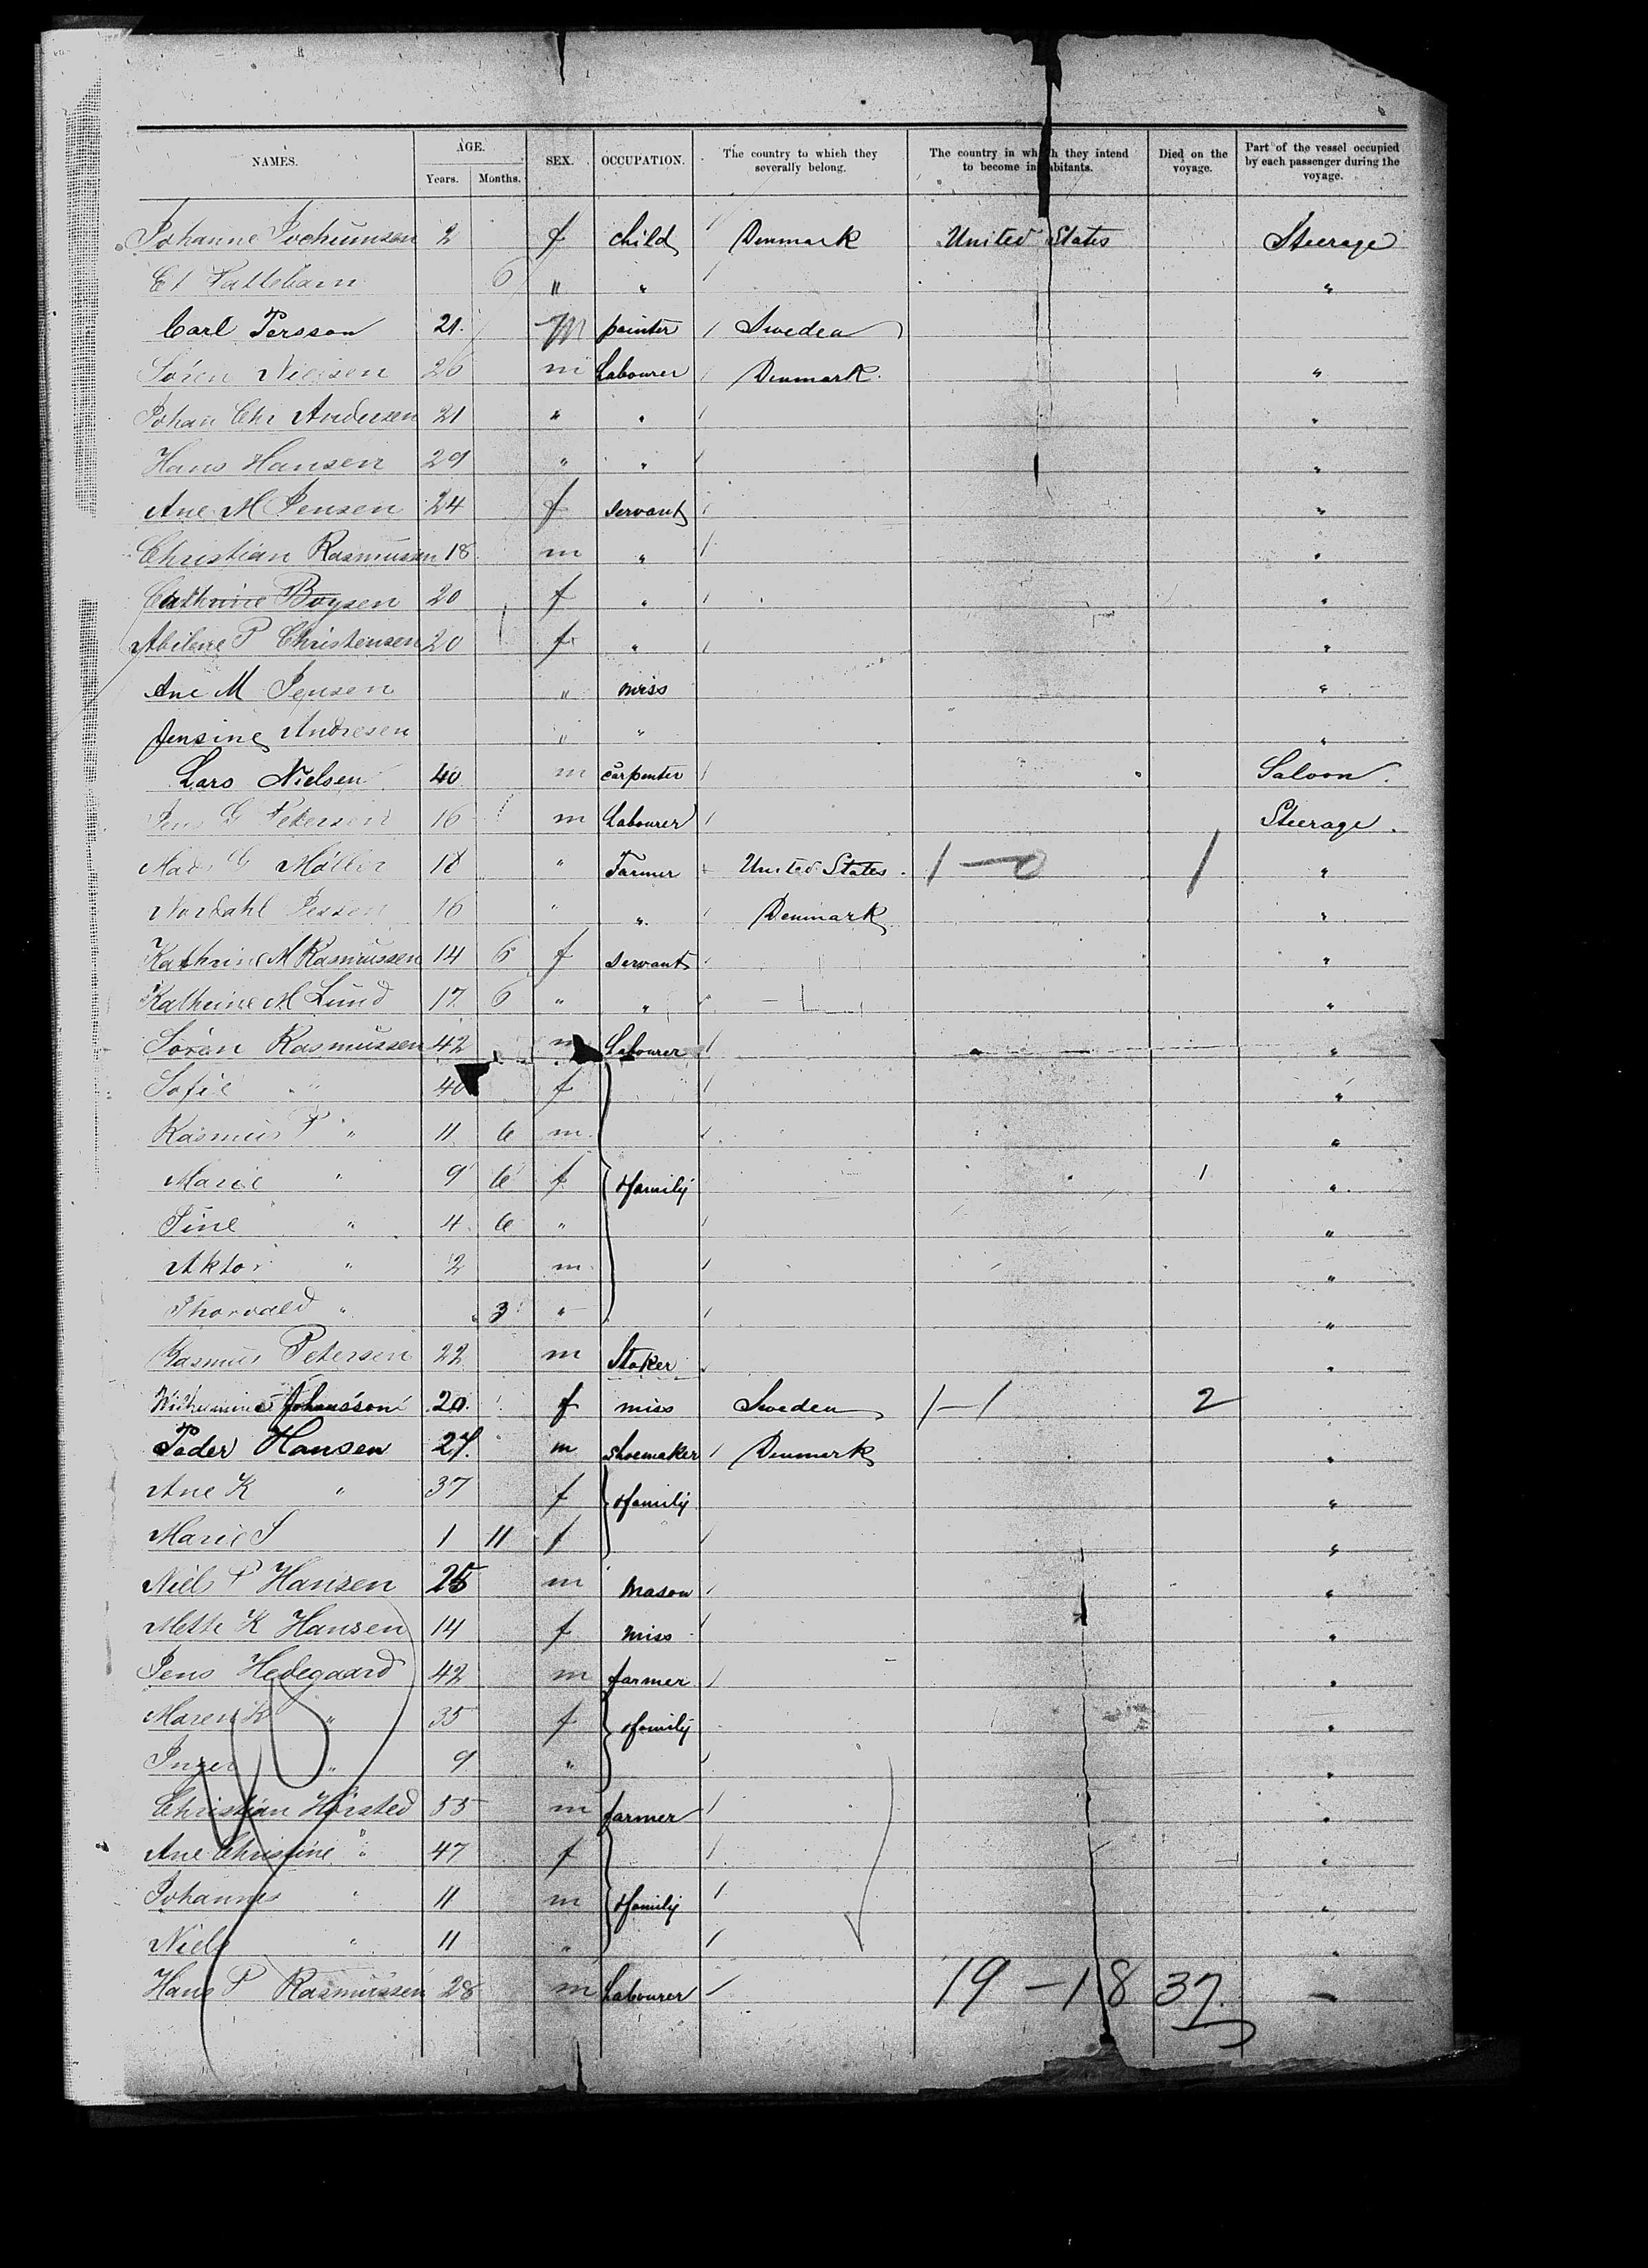 NAMES. AGE. SEX. OCCUPATION. The country to which they severally belong. The country in which they intend to become inhabitants. Died on the voyage. Part of the vessel occupied by each passenger during the voyage.
Years. Months.
Johanne Jochumsen 2 f child / Denmark United States Steerage
Et Pattebarn 6 " " / "
Carl Persson 21 m painter / Sweden
Sören Nielsen 26 m Labourer / Denmark "
Johan Chr Andersen 21 " " / "
Hans Hansen 29 " " / "
Ane M Jensen 24 f servant / "
Christian Rasmussen 18 m " / "
Cathrine Boysen 20 f " / "
Abilene P Christensen 20 f " / "
Ane M Jensen " miss "
Jensine Andresen " " "
Lars Nielsen 40 m carpenter / Saloon.
Jens G Petersen 16 m Labourer / Steerage.
Mads G Möller 18 " Farmer United States. 1-0 1 "
Nordahl 16 " " / Denmark "
Kathrine M Rasmussen 14 6 f servant / "
Kathrine M Lund 17 6 " " "
Sören Rasmussen 42 m Labourer / "
Sofie " 40 f / "
Rasmus P " 11 6 m / "
Marie " 9 6 f family 1 "
Sine " 4 6 " / "
Aktor " 2 m / "
Thorvald " 3 " / "
Rasmus Petersen 22 m Stoker "
Wilhelmina Johansson 20 f miss Sweden 1-1 2
Peder Hansen 27. m shoemaker / Denmark "
Ane K " 37 f family "
Marie S 1 11 f / "
Niels P Hansen 25 m Mason / "
Mette K Hansen 14 f Miss / "
Jens Hedegaard 42 m farmer / "
Maren K " 35 f family "
Inger " 9 " / "
Christian Hörsted 55 m farmer / "
Ane Christine " 47 f / "
Johannes " 11 m family / "
Niels " 11 " / "
Hans P Rasmussen 28 m Labourer / 19-18 37. "